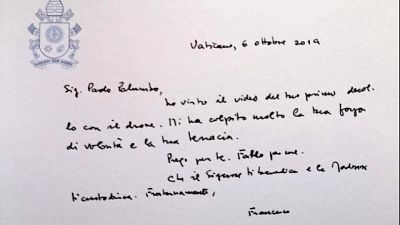 Vaticano, 6 ottobre 2019
Sig. Paolo Palumbo,
ho visto il video del tuo primo decol
lo con il drone. Mi ha colpito molto la tua forza
di volontà e la tua tenacia.
Prego per te. Fallo per me.
Che il Signore ti benedica e la Madonna
ti custodisca. Fraternamente,
Francesco